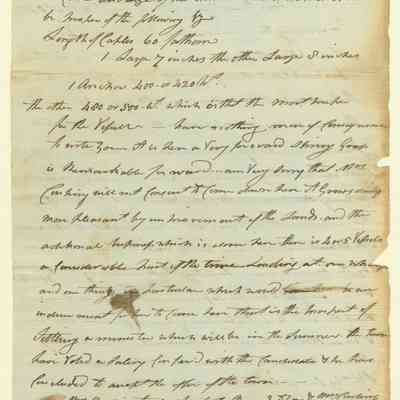 be make of the following Vz
Length of Cables 60 fathom
1 Large 7 inches the other Large 8 inches
1 Anchor 400 or 420 lb.
the other 480 or 500 wt which is that the most
for the Vessell — have nothing more of Consequence
to write you it is here a Very forward Spring Grass
is Remarkable forward — am Very Sorry that Mrs
Cushing will not Consent to Come Down here it Grows
more pleasant by improvement of the Lands, and the
aditional business which is done here there is 4 or 5 Vessells
a Considerable part of the time Loading at our
and one thing in particular which would be an
inducement for him to Come here that is the prospect of
Settling a minister which will be in the Summer the town
have Voted a Salery Confared with the Candidate & he have
Concluded to accept the offer of the town —